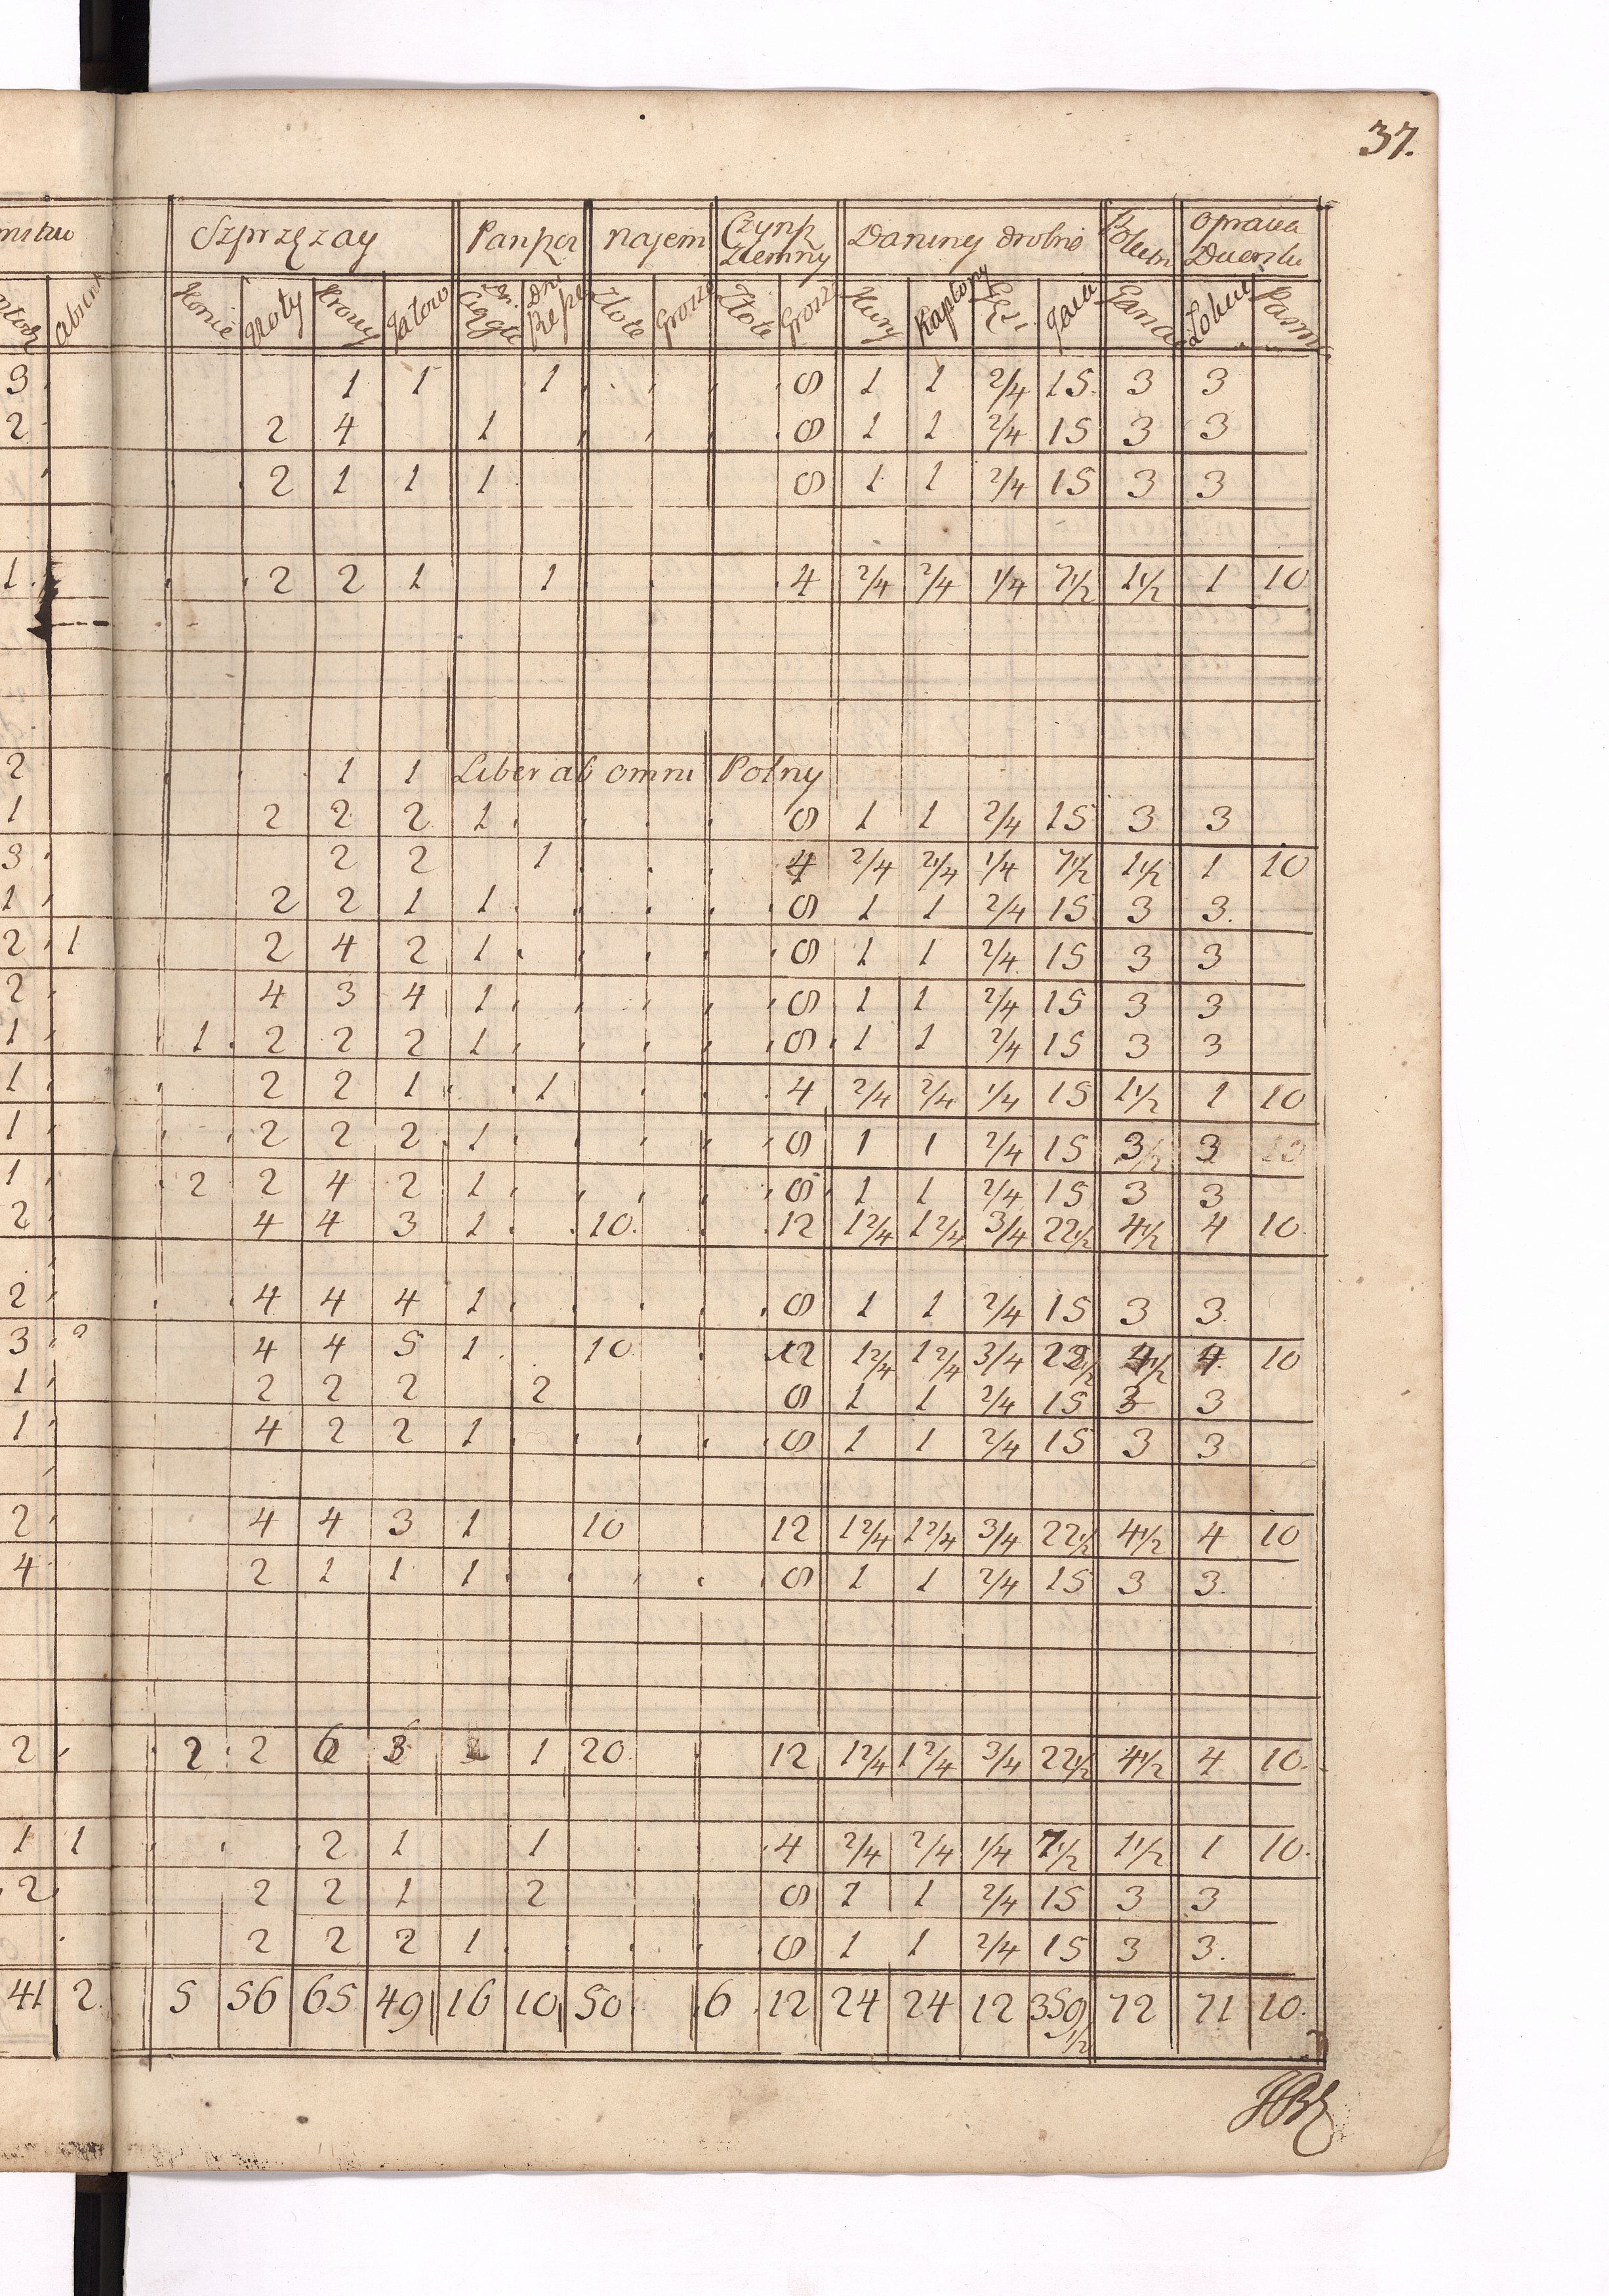 37.
Szprzęzay Panpcz najem Czynß Ziemny Daniny drobne opraua
Konie Woły Krowy Jałow Cięgłe Złote Grosze Złote Grosze Kury Kapłony Gęsi Jaia
3 1 1 1 8 1 1 2/4 15 3 3
2 2 4 1 8 1 1 2/4 15 3 3
2 1 1 1 8 1 1 2/4 15 3 3
1 2 2 1 1 4 2/4 2/4 1/4 7 1/2 1 1/2 1 10
2 1 1 Liber ab omni Polny
1 2 2 2 1 8 1 1 2/4 15 3 3
3 2 2 1 4 2/4 2/4 1/4 7 1/2 1 1/2 1 10
1 2 2 1 1 8 1 1 2/4 15 3 3
2 1 2 4 2 1 8 1 1 2/4 15 3 3
2 4 3 4 1 8 1 1 2/4 15 3 3
1 1 2 2 2 1 8 1 1 2/4 15 3 3
1 2 2 1 1 4 2/4 2/4 1/4 15 1 1/2 1 10
1 2 2 2 1 8 1 1 2/4 15 3 3
1 2 2 4 2 1 8 1 1 2/4 15 3 3
2 4 4 3 1 10 12 1 2/4 1 2/4 3/4 22 1/2 4 1/2 4 10
2 4 4 4 1 8 1 1 2/4 15 3 3
3 4 4 5 1 10 12 1 2/4 1 2/4 3/4 22 1/2 4 1/2 4 10
1 2 2 2 2 8 1 1 2/4 15 3 3
1 4 2 2 1 8 1 1 2/4 15 3 3
2 4 4 3 1 10 12 1 2/4 1 2/4 3/4 22 1/2 4 1/2 4 10
4 2 1 1 1 8 1 1 2/4 15 3 3
2 2 2 6 3 1 20 12 1 2/4 1 2/4 3/4 22 1/2 4 1/2 4 10
1 1 2 1 1 4 2/4 2/4 1/4 7 1/2 1 1/2 1 10
2 2 2 1 2 8 1 1 2/4 15 3 3
2 2 2 1 8 1 1 2/4 15 3 3
41 2 5 56 65 49 16 10 50 6 12 24 24 12 359 1/2 72 71 10